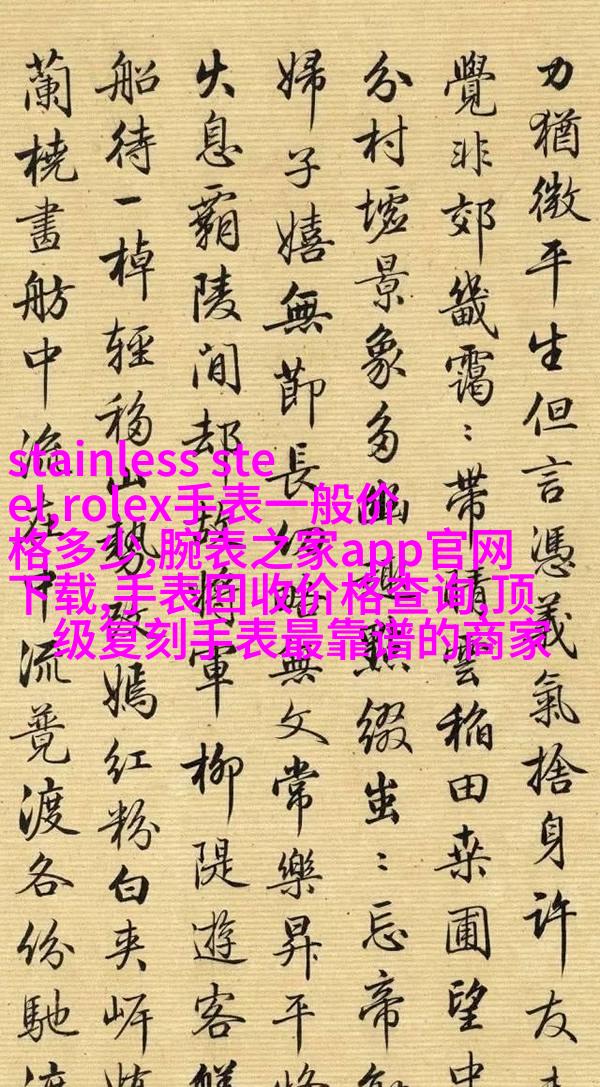 力猶微平生但言憑義氣捨身許友
覺非郊畿靄：帶晴雲稻田桑圃望中
分村墟景象多幽趣點綴出：忘帝
婦子嬉無節長無文常樂昇平
失息霸陵間却故將軍柳隄遊客
船待一棹輕移山勢嫣紅粉白夾岸
蘭橈畫舫中流在中流競渡各份馳
stainless ste
el,rolex手表一般价
格多少,腕表之家app官网
下载,手表回收价格查询,顶
级复刻手表最靠谱的商家